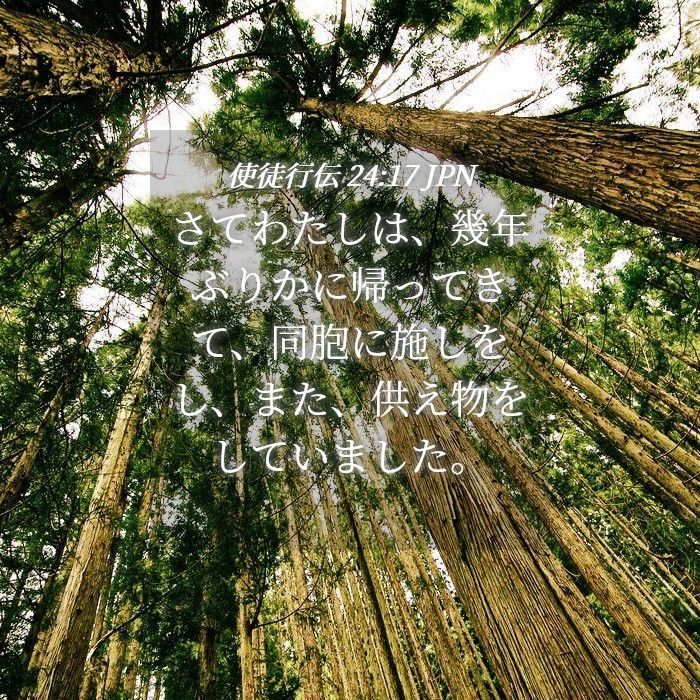 使徒行伝 24:17 JPN
さてわたしは、幾年
ぶりかに帰ってき
て、同胞に施しを
し、また、供え物を
していました。